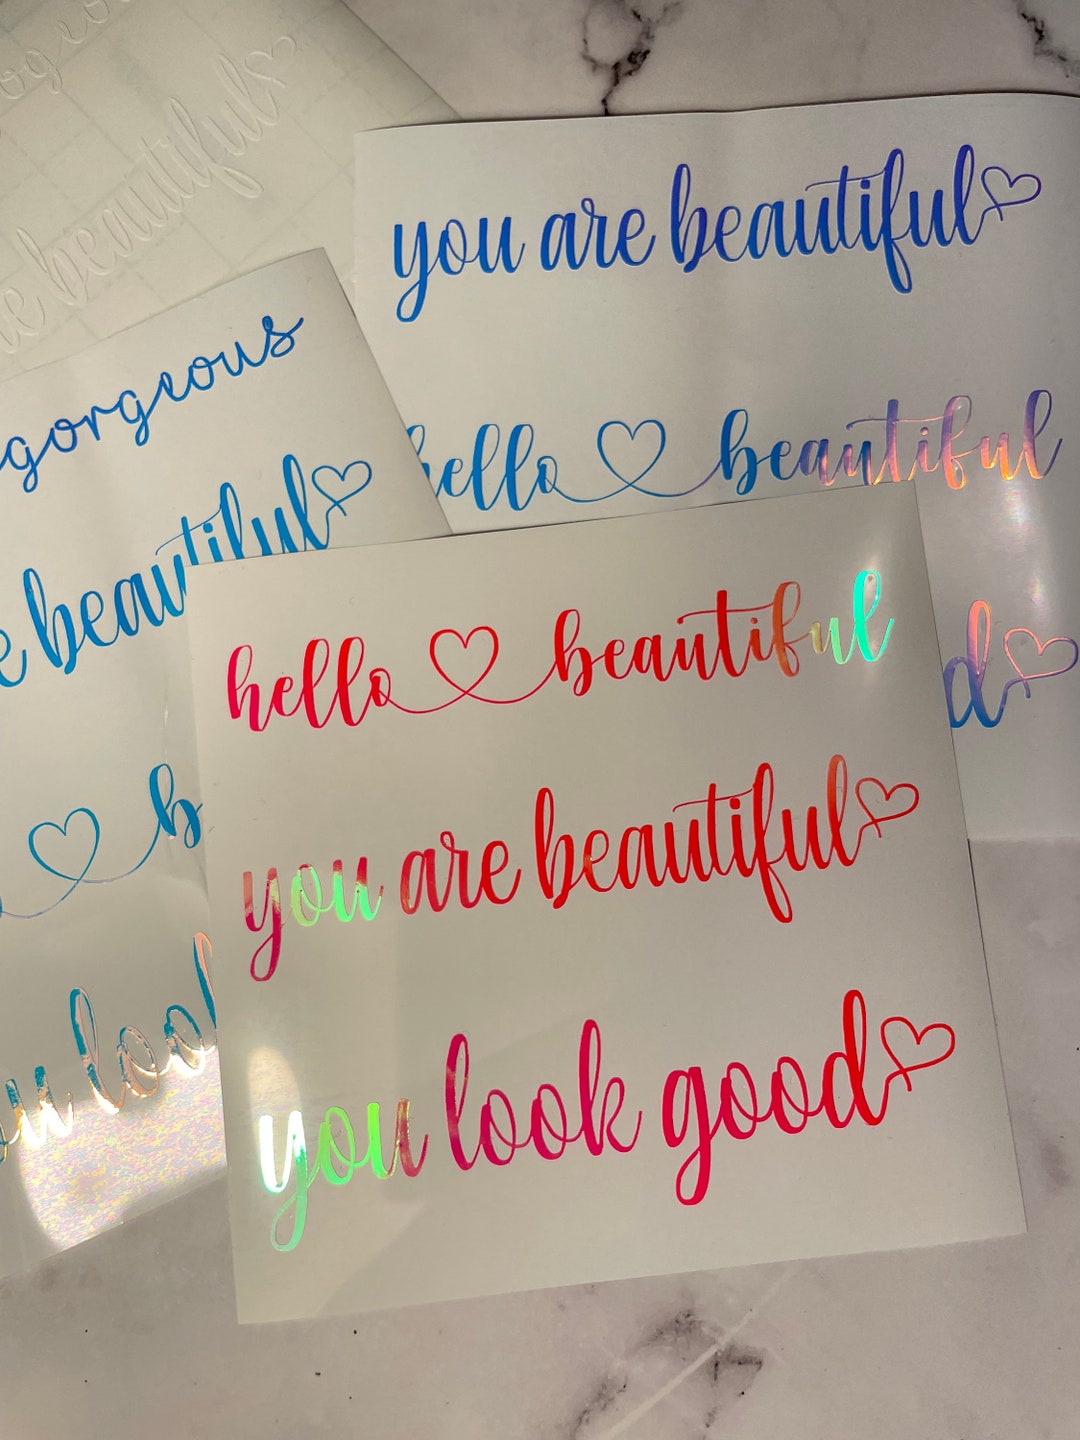 you are beautiful
hello beautiful
d
gorgeous
e beautiful
b
ou look
hello beautiful
you are beautiful
you look good
beautiful